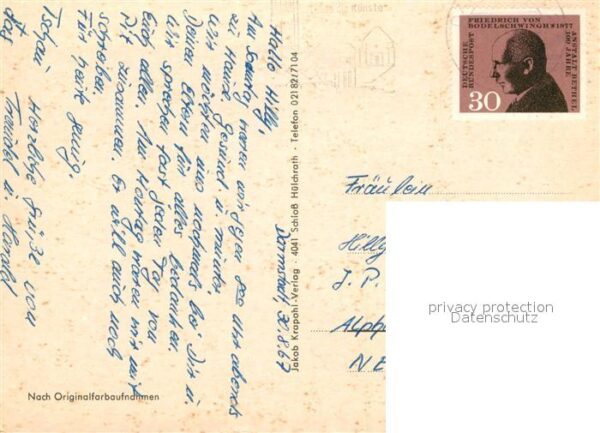 Darmstadt, 30.8.67
Hallo Hilly,
Am Sonntag waren wir gegen 800 Uhr abends
zu Hause, gesund u. munter.
Wir möchten uns nochmals bei Dir u.
Deinen Eltern für alles bedanken.
Wir sprechen fast jeden Tag von
Euch allen. Am Montag waren wir mit
Pit zusammen. Er will auch noch
schreiben.
Für heute genug
Tschau
Herzliche Grüße von
Traudel u. Harald
Jakob Krapohl-Verlag · 4041 Schloß Hülchrath · Telefon 02182/7104
Nach Originalfarbaufnahmen
FRIEDRICH VON
BODELSCHWINGH †1877
DEUTSCHE
BUNDESPOST
ANSTALT BETHEL
100 JAHRE
30
Fräulein
Hilly
J. P.
Alph
NE
privacy protection
Datenschutz